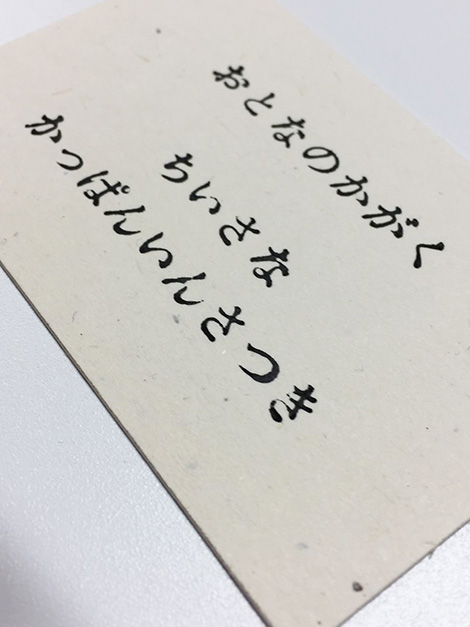 おとなのかがく
ちいさな
かつぱんいんさつき